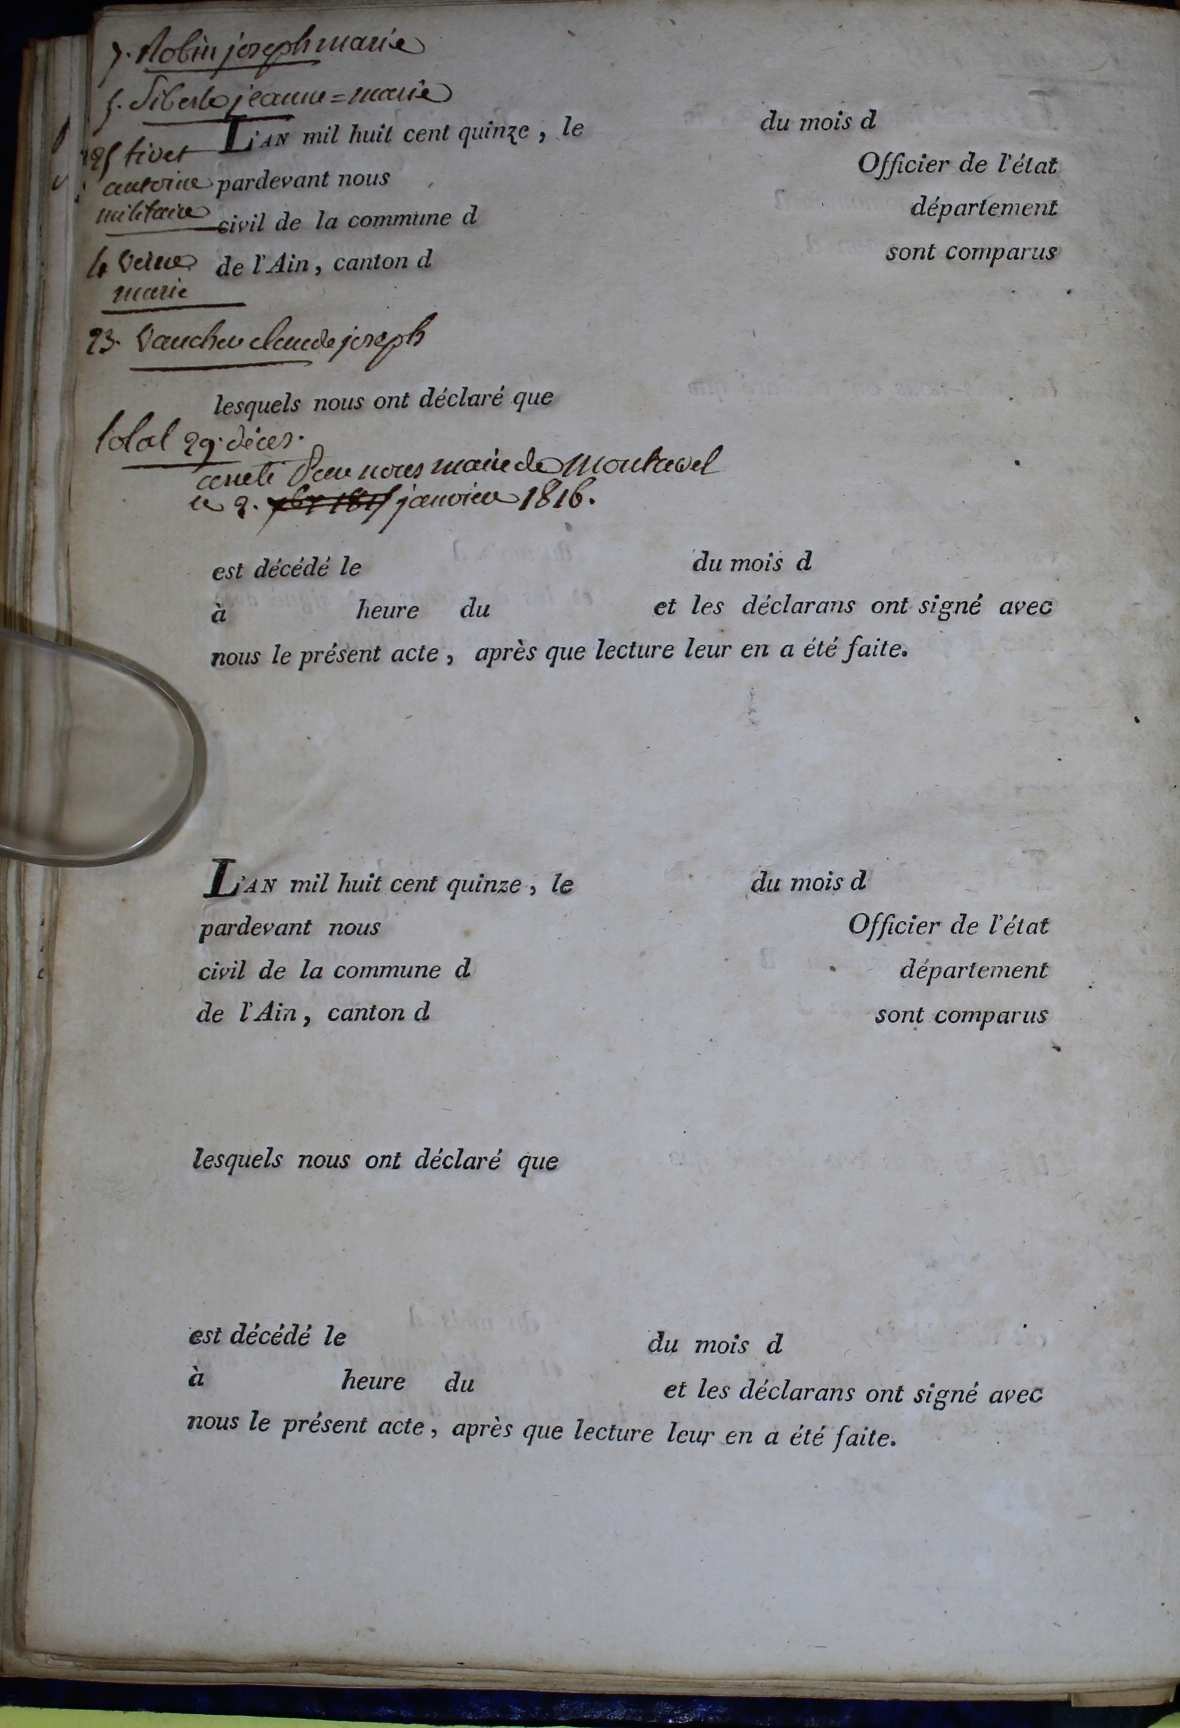 7. Robin joseph marie
5. Siberte jeanne=marie
L'AN mil huit cent quinze, le du mois d
25 tivet
antoine
pardevant nous Officier de l'état
militaire
civil de la commune d département
4 Verne
de l'Ain, canton d sont comparus
marie
23. Vaucher claude joseph
lesquels nous ont déclaré que
total 29. décès.
arreté Par nous maire de Montrevel
le 2. janvier 1816.
est décédé le du mois d
à heure du et les déclarans ont signé avec
nous le présent acte, après que lecture leur en a été faite.
L'AN mil huit cent quinze, le du mois d
pardevant nous Officier de l'état
civil de la commune d département
de l'Ain, canton d sont comparus
lesquels nous ont déclaré que
est décédé le du mois d
à heure du et les déclarans ont signé avec
nous le présent acte, après que lecture leur en a été faite.